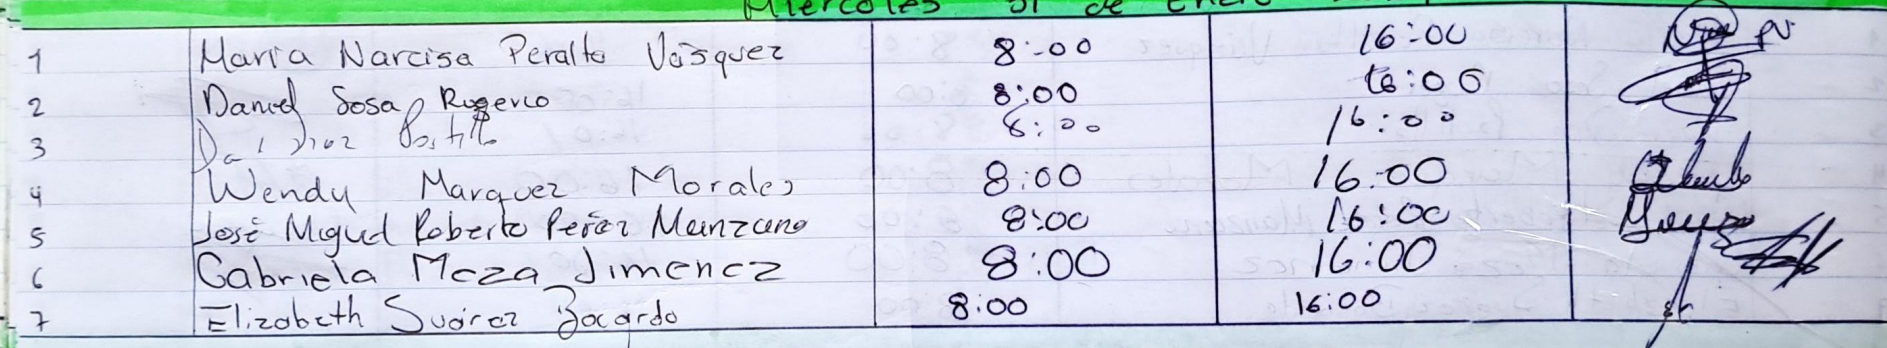 Miercoles 31 de Enero
1 Maria Narcisa Peralta Vásquez 8:00 16:00
2 Daniel Sosa 8:00 16:00
3 8:00 16:00
4 Wendy Marquez Morales 8:00 16:00
5 José Miguel Roberto Peréz Manzano 8:00 16:00
6 Gabriela Meza Jimenez 8:00 16:00
7 Elizabeth Suárez Bocardo 8:00 16:00